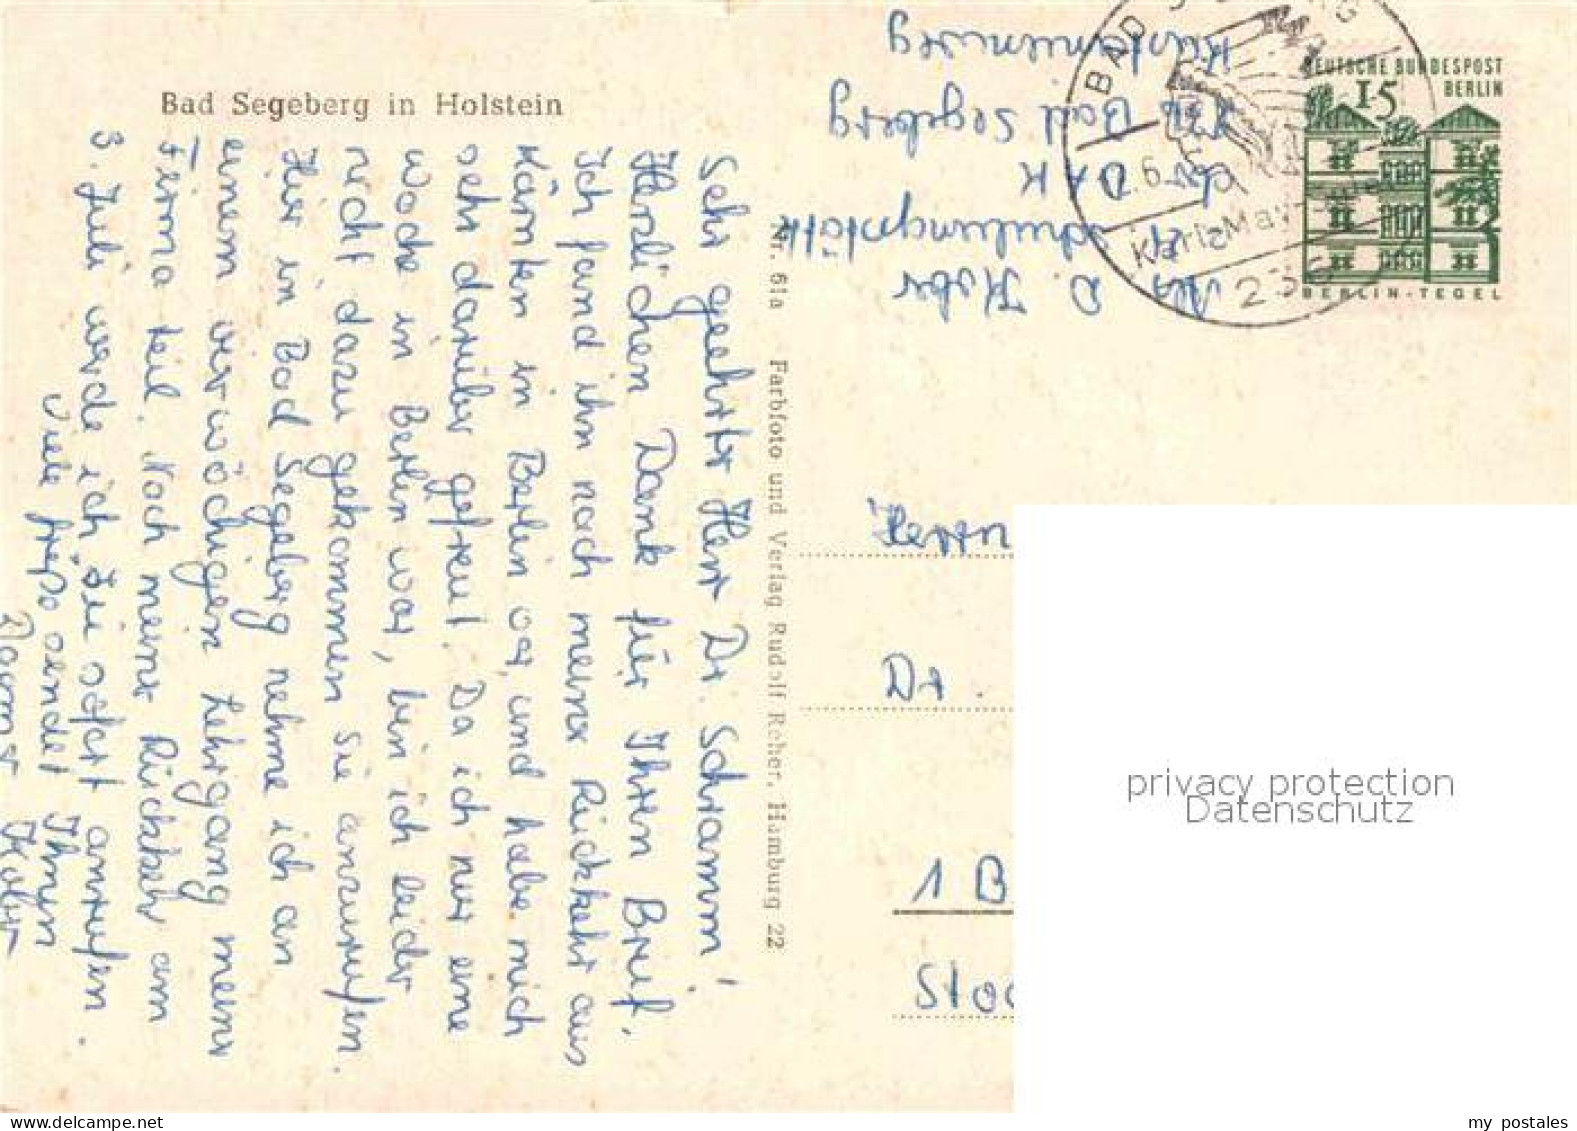 Bad Segeberg in Holstein
Sehr geehrter Herr Dr. Schramm!
Herzlichen Dank für Ihren Brief.
Ich fand ihn nach meiner Rückkehr aus
Kärnten in Berlin vor, und habe mich
sehr darüber gefreut. Da ich nur eine
Woche in Berlin war, bin ich leider
nicht dazu gekommen Sie anzurufen.
Hier in Bad Segeberg nehme ich an
einem vierwöchigen Lehrgang meiner
Firma teil. Nach meiner Rückkehr am
3. Juli werde ich Sie sofort anrufen.
Viele Grüße sendet Ihnen
Kober
Nr. 61a Farbfoto und Verlag Rudolf Reher, Hamburg 22
D. Kober
Schulungsstätte
der DAK
Bad Segeberg
Kastanienweg
BAD SEGEBERG
Karl-May-
236
DEUTSCHE BUNDESPOST
BERLIN
15
BERLIN-TEGEL
Herrn
Dr.
1 B
privacy protection
Datenschutz
my postales